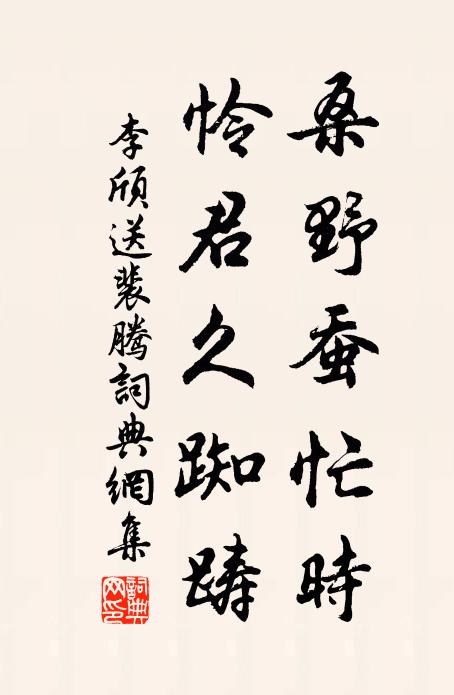 桑野蚕忙時
怜君久踟躊
李頎送裴騰詞典網集
詞典網印